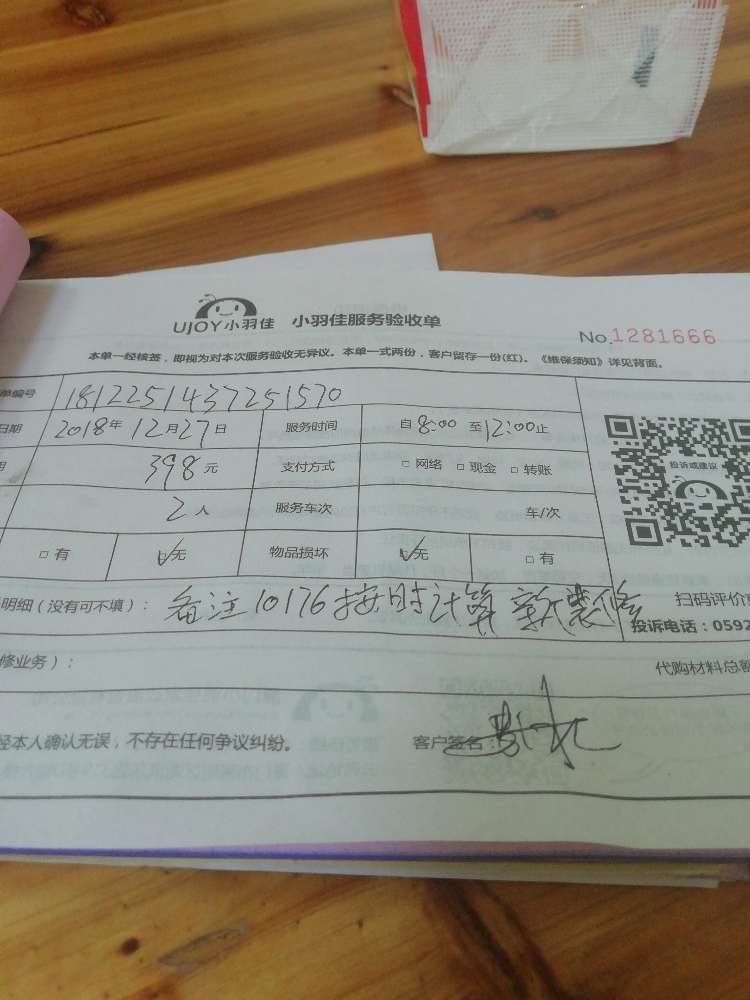 UJOY小羽佳 小羽佳服务验收单
No.1281666
本单一经核签，即视为对本次服务验收无异议。本单一式两份，客户留存一份(红)。《维保须知》详见背面。
单编号 1812251437251570
日期 2018年12月27日 服务时间 自8:00至12:00止
398元 支付方式 □网络 □现金 □转账
投诉或建议
2人 服务车次 车/次
□有 ☑无 物品损坏 ☑无 □有
明细（没有可不填）： 备注10176按时计算 新装修
扫码评价
投诉电话：0592
修业务）： 代购材料总额
经本人确认无误，不存在任何争议纠纷。 客户签名：